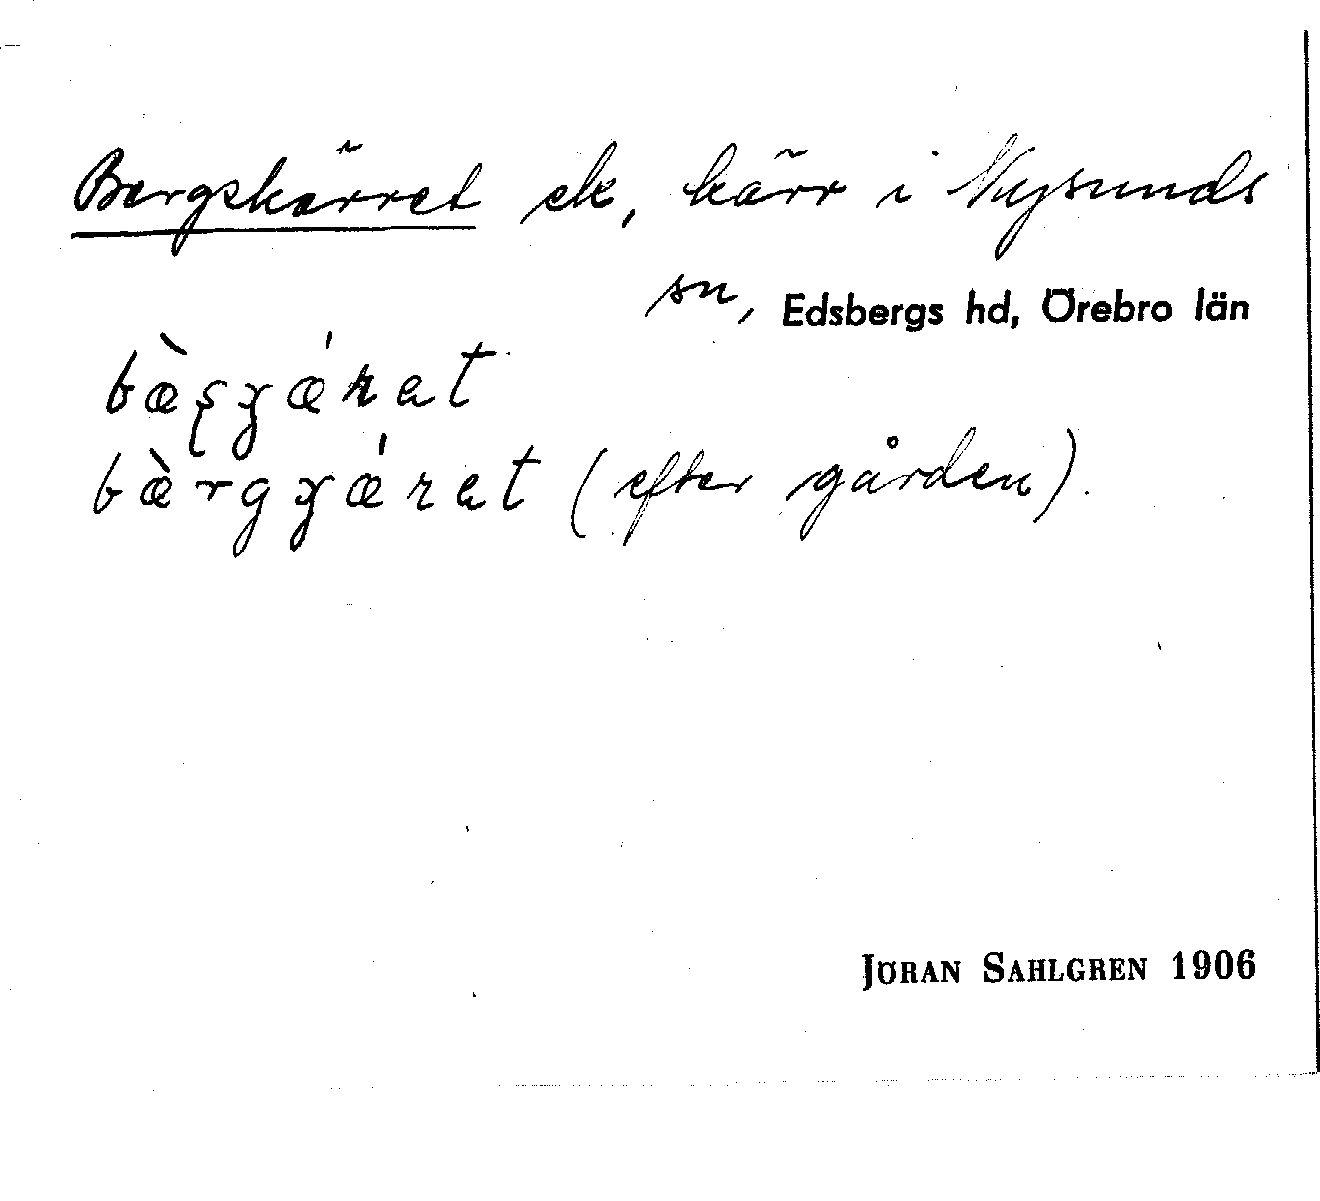 Bergskärret ek, kärr i Nysunds
sn, Edsbergs hd, Örebro län
(efter gården).
JÖRAN SAHLGREN 1906